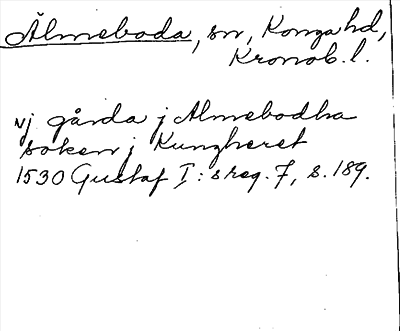 Älmeboda, sn, Konga hd,
Kronob. l.
vj gårda j Almebodha
soken j Kungheret
1530 Gustaf I:s reg. 7, s. 189.